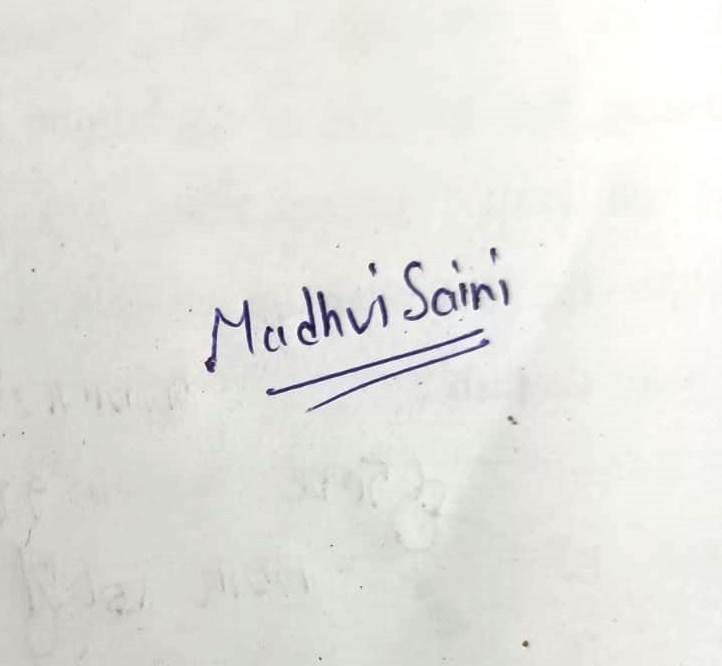 Madhvi Saini